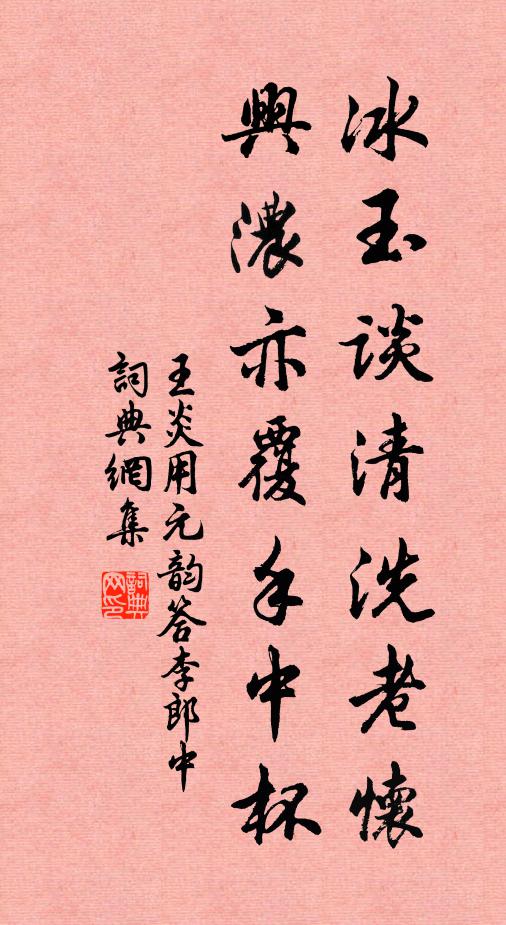 冰玉談清洗老懷
興濃亦覆手中杯
王炎用元韵答李郎中
詞典網集
詞典网印